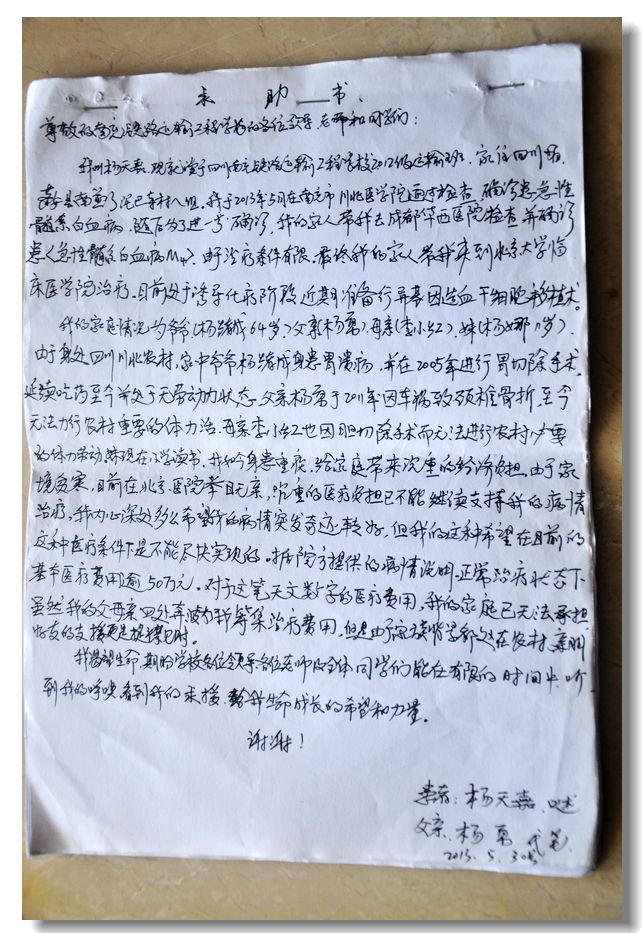 求助书
尊敬的南充铁路运输工程学校的各位领导、老师和同学们:
我叫杨天嘉,现就读于四川南充铁路运输工程学校2012级运输班,家住四川
县 八组,我于2013年5月在南充市川北医学院通过检查,确诊患急性
髓系白血病,随后为了进一步确诊,我的家人带我去成都华西医院检查并确诊
患<急性髓系白血病M4>。由于治疗条件有限,最终我的家人带我来到北京大学临
床医学院治疗,目前处于诱导化疗阶段,近期准备行异基因造血干细胞移植术。
我的家庭情况为爷爷(杨 成64岁)父亲(杨勇)母亲(李小红)、妹(杨娜 岁)、
由于身处四川川北农村,家中爷爷杨 成身患胃溃病,并在2005年进行胃切除手术,
延续吃药至今并处于无劳动力状态,父亲杨勇于2011年因车祸致颈椎骨折,至今
无法力行农村重要的体力活,母亲李小红也因胆切除手术而无法进行农村 重
的体力劳动,妹现在小学读书,我如今身患重症,给家庭带来沉重的经济负担,由于家
境贫寒,目前在北京医院举目无亲,沉重的医疗负担已不能继续支撑我的病情
治疗,我内心深处多么希望我的病情突发奇迹转好,但我的这种希望在目前的
这种医疗条件下是不能尽快实现的。据院方提供的病情说明,正常治疗状态下
基本医疗费用逾50万元。对于这笔天文数字的医疗费用,我的家庭已无法承担
虽然我的父母亲四处奔波为我筹集治疗费用,但是由于家族背景都处在农村,亲朋
好友的支援更是捉襟见肘。
我渴望生命,期盼学校各位领导、各位老师及全体同学们能在有限的时间中,听
到我的呼唤,看到我的求援,给我生命成长的希望和力量。
谢谢!
杨天嘉
父亲、杨勇 代笔
2013.5.30